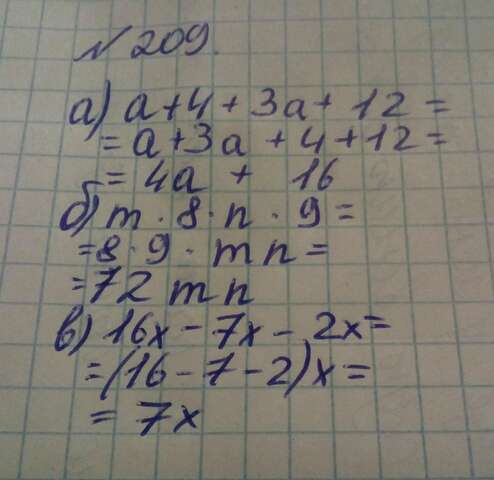 № 209.
а) a + 4 + 3a + 12 =
= a + 3a + 4 + 12 =
= 4a + 16
б) m · 8 · n · 9 =
= 8 · 9 · mn =
= 72 mn
в) 16x - 7x - 2x =
= (16 - 7 - 2)x =
= 7x